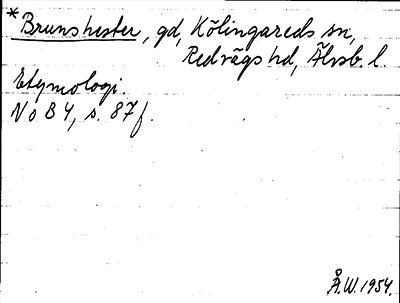 * Brunshester, gd, Kölingareds sn,
Redvägs hd, Älvsb. l.
Etymologi.
NoB 4, s. 87 f.
Å.W. 1954.